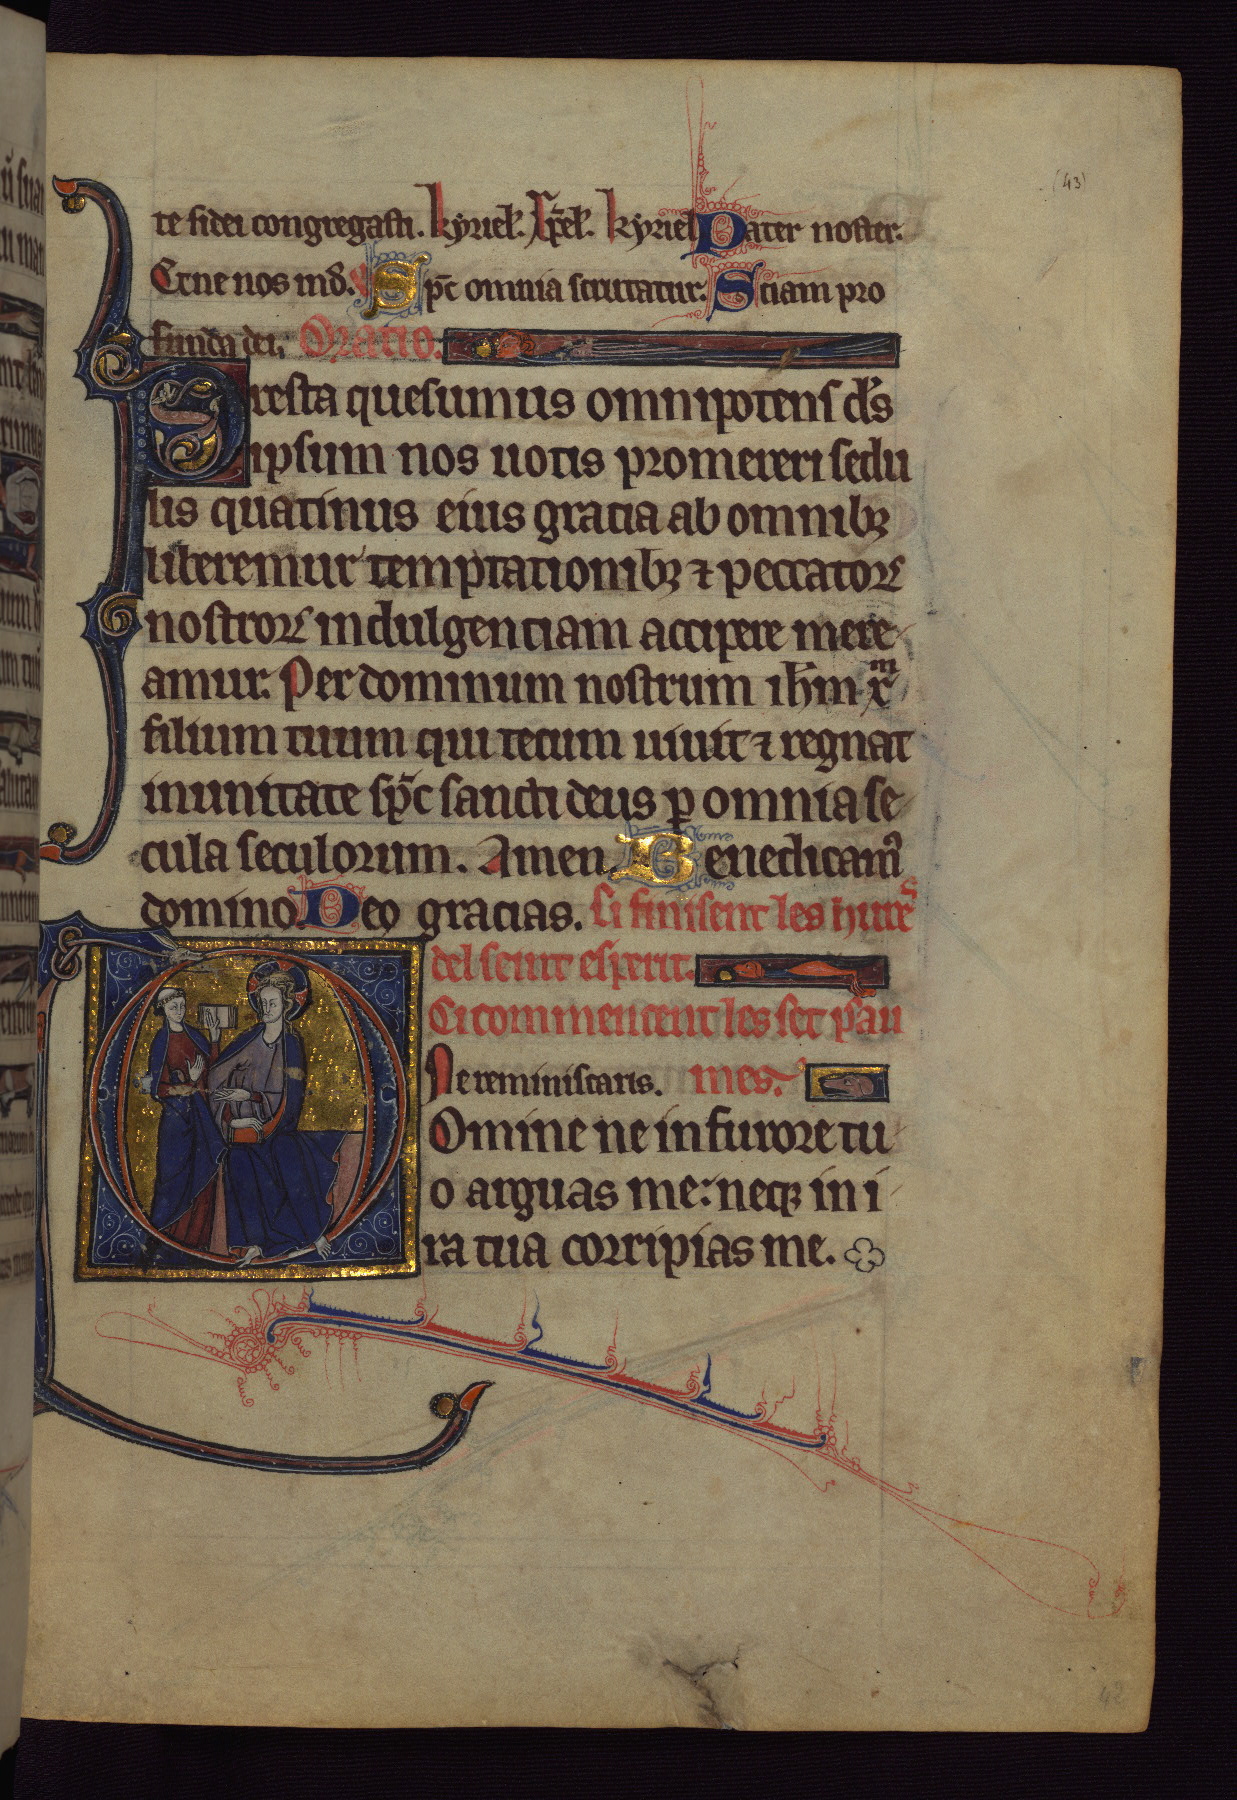 (43)
te fidei congregasti. kyriel'. xp̄el'. kyriel' Pater noster.
Et ne nos ind'. Sp̄c omnia scrutatur. Etiam pro
funda dei. Oratio.
Presta quesumus omnipotens d's
ipsum nos uotis promereri sedu
lis quatinus eius gratia ab omnibꝫ
liberemur temptationibꝫ ⁊ peccatoꝝ
nostroꝝ indulgentiam accipere mere
amur. Per dominum nostrum ih̄m xm
filium tuum qui tecum uiuit ⁊ regnat
in unitate sp̄c sancti deus ꝑ omnia se
cula seculorum. Amen. Benedicam'
domino. Deo gracias. Ci finisent les hures
del seint esperit.
Ci commencent les set psau
Ne reminiscaris. mes.
Domine ne in furore tu
o arguas me: neqꝫ in i
ra tua corripias me.
42